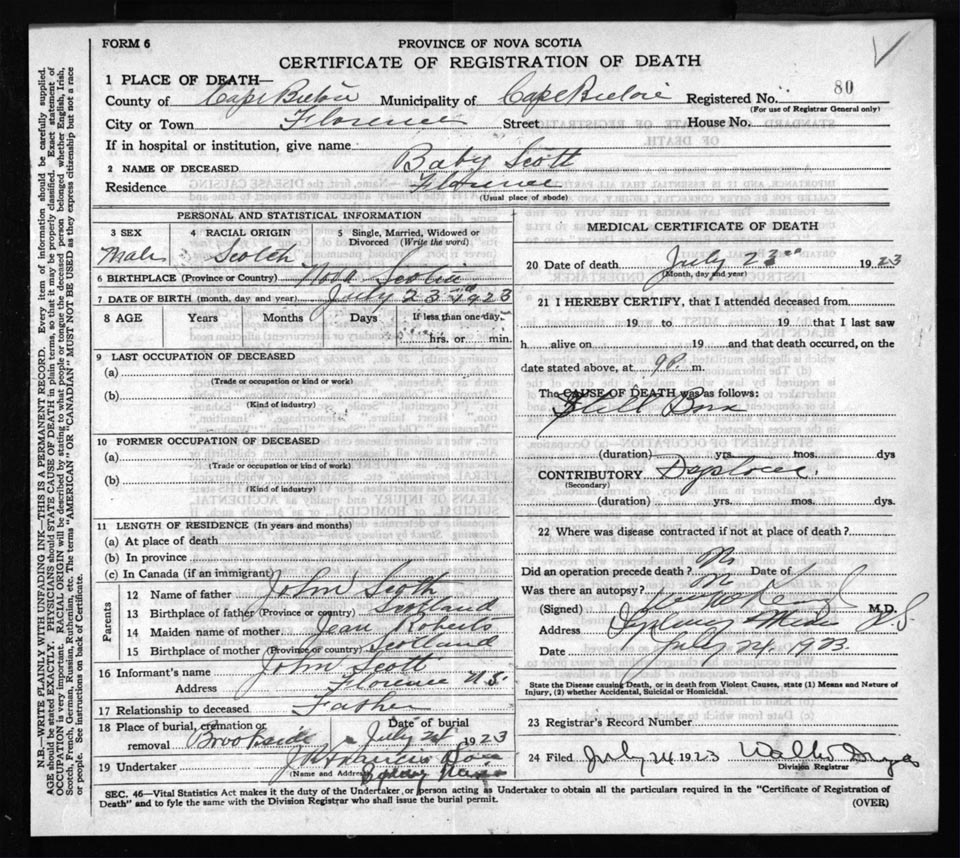 FORM 6
PROVINCE OF NOVA SCOTIA
CERTIFICATE OF REGISTRATION OF DEATH
80
1 PLACE OF DEATH—
County of Cape Breton Municipality of Cape Breton Registered No.
(For use of Registrar General only)
City or Town Florence Street House No.
If in hospital or institution, give name
2 NAME OF DECEASED Baby Scott
Residence Florence
(Usual place of abode)
PERSONAL AND STATISTICAL INFORMATION
3 SEX Male
4 RACIAL ORIGIN Scotch
5 Single, Married, Widowed or Divorced (Write the word)
6 BIRTHPLACE (Province or Country) Nova Scotia
7 DATE OF BIRTH (month, day and year) July 23rd 1923
8 AGE Years Months Days If less than one day, hrs. or min.
9 LAST OCCUPATION OF DECEASED
(a)
(Trade or occupation or kind or work)
(b)
(Kind of industry)
10 FORMER OCCUPATION OF DECEASED
(a)
(Trade or occupation or kind of work)
(b)
(Kind of industry)
11 LENGTH OF RESIDENCE (In years and months)
(a) At place of death
(b) In province
(c) In Canada (if an immigrant)
Parents
12 Name of father John Scott
13 Birthplace of father (Province or country) Scotland
14 Maiden name of mother Jean Roberts
15 Birthplace of mother (Province or country) Scotland
16 Informant's name John Scott
Address Florence N.S.
17 Relationship to deceased Father
18 Place of burial, cremation or removal Brookside
Date of burial July 1923
19 Undertaker Francis
(Name and Address)
MEDICAL CERTIFICATE OF DEATH
20 Date of death July 1923
(Month, day and year)
21 I HEREBY CERTIFY, that I attended deceased from
19 to 19 that I last saw
h alive on 19 and that death occurred, on the
date stated above, at 9 P. m.
The CAUSE OF DEATH was as follows:
Still Born
(duration) yrs. mos. dys
CONTRIBUTORY
(Secondary)
(duration) yrs. mos. dys.
22 Where was disease contracted if not at place of death?
Did an operation precede death? No Date of
Was there an autopsy? No
(Signed) M.D.
Address Sydney Mines N.S.
Date July 24. 1923.
State the Disease causing Death, or in death from Violent Causes, state (1) Means and Nature of
Injury, (2) whether Accidental, Suicidal or Homicidal.
23 Registrar's Record Number
24 Filed July 24 1923
Division Registrar
SEC. 46—Vital Statistics Act makes it the duty of the Undertaker, or person acting as Undertaker to obtain all the particulars required in the "Certificate of Registration of
Death" and to fyle the same with the Division Registrar who shall issue the burial permit.
(OVER)
N.B.—WRITE PLAINLY WITH UNFADING INK—THIS IS A PERMANENT RECORD. Every item of information should be carefully supplied.
AGE should be stated EXACTLY. PHYSICIANS should STATE CAUSE OF DEATH in plain terms, so that it may be properly classified. Exact statement of
OCCUPATION is very important. RACIAL ORIGIN will be described by stating to what people or tongue the deceased person belonged, whether English, Irish,
Scotch, French, German, Russian, Ruthenian, etc. The terms "AMERICAN" OR "CANADIAN" MUST NOT BE USED as they express citizenship but not a race
or people. See instructions on back of Certificate.